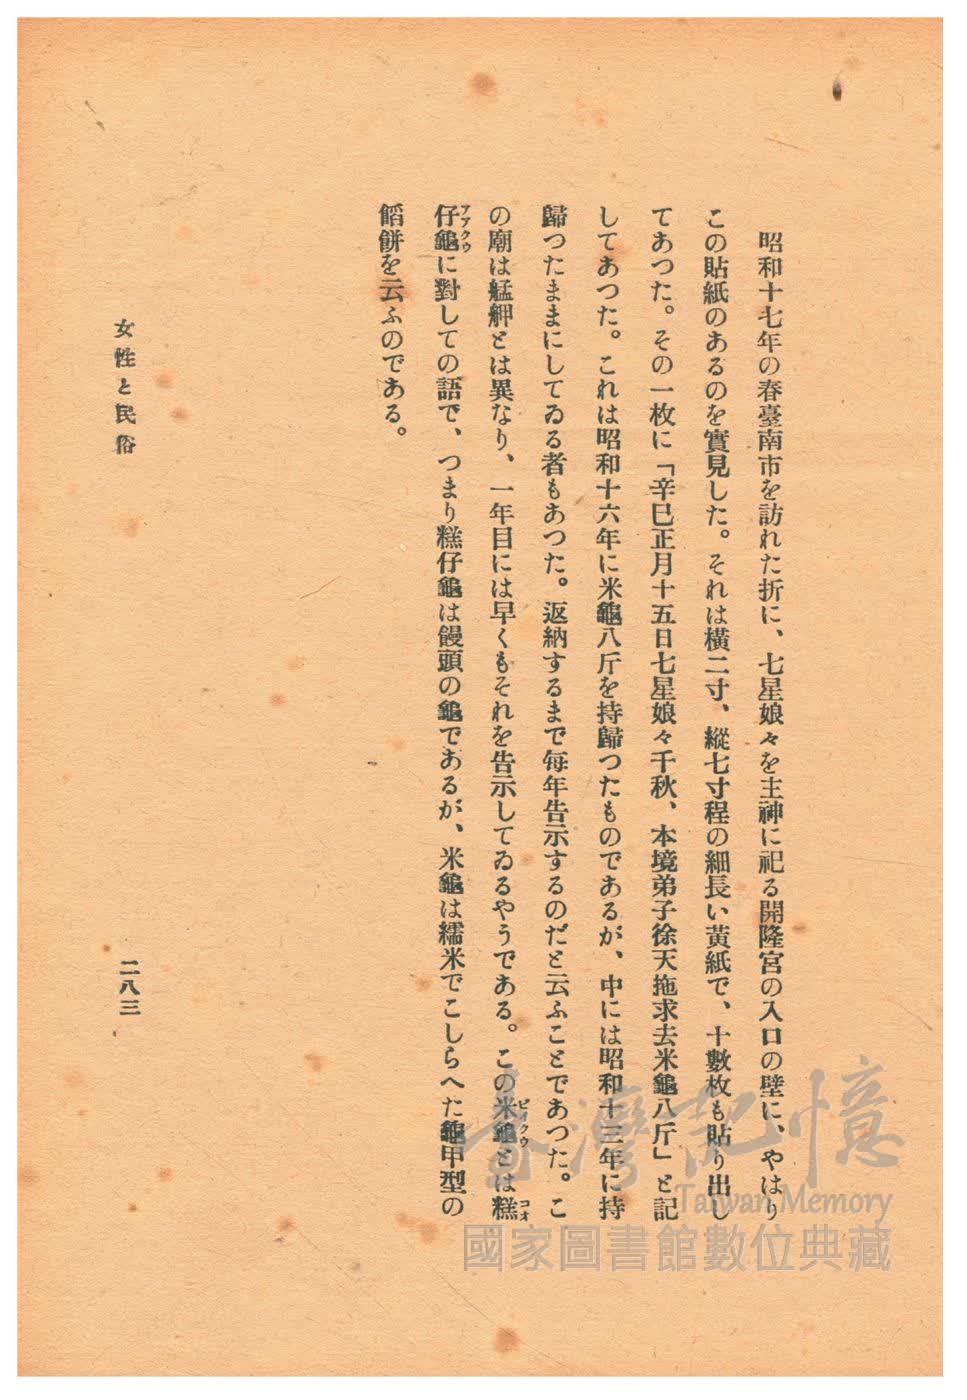 昭和十七年の春臺南市を訪れた折に、七星娘々を主神に祀る開隆宮の入口の壁に、やはり
この貼紙のあるのを實見した。それは横二寸、縱七寸程の細長い黄紙で、十數枚も貼り出し
てあつた。その一枚に「辛巳正月十五日七星娘々千秋、本境弟子徐天拖求去米龜八斤」と記
してあつた。これは昭和十六年に米龜八斤を持歸つたものであるが、中には昭和十三年に持
歸つたままにしてゐる者もあつた。返納するまで毎年告示するのだと云ふことであつた。こ
の廟は艋舺とは異なり、一年目には早くもそれを告示してゐるやうである。この米龜とは糕
ビイクウ
コオ
仔龜に對しての語で、つまり糕仔龜は饅頭の龜であるが、米龜は糯米でこしらへた龜甲型の
アアクウ
餡餅を云ふのである。
女性と民俗
二八三
臺灣記憶
Taiwan Memory
國家圖書館數位典藏